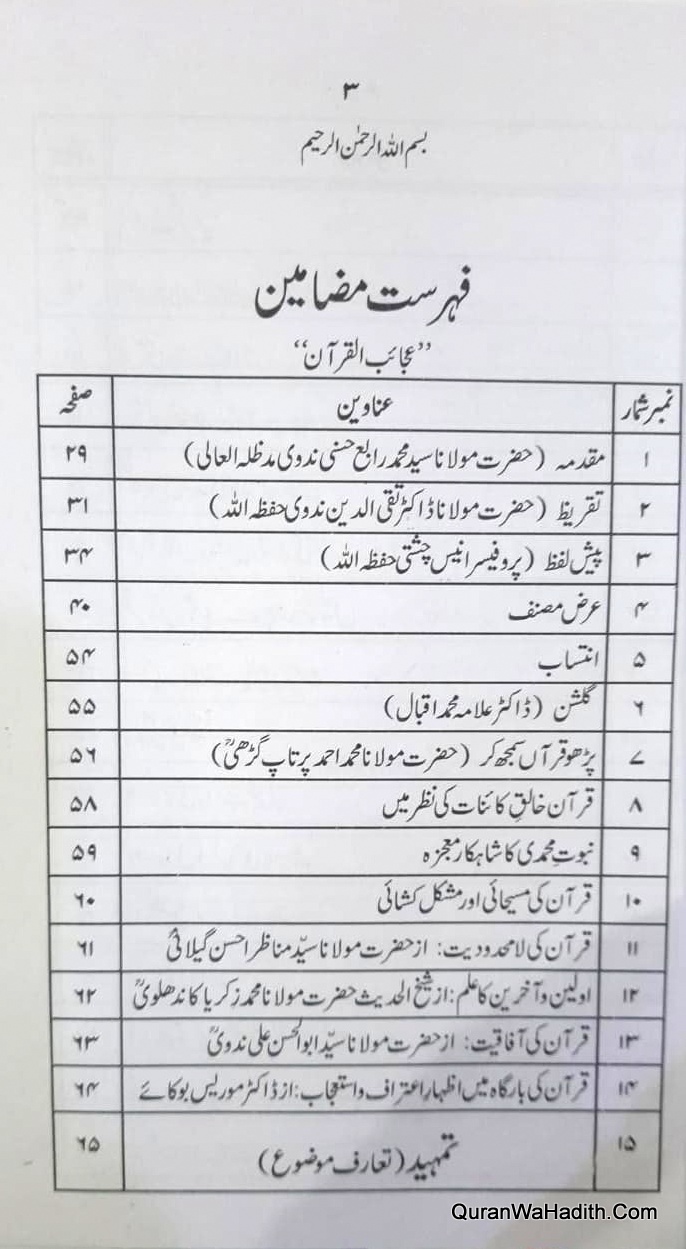 ۳
بسم اللہ الرحمٰن الرحیم
فہرست مضامین
”عجائب القرآن“
نمبر شمار عناوین صفحہ
۱ مقدمہ (حضرت مولانا سید محمد رابع حسنی ندوی مدظلہ العالی) ۲۹
۲ تقریظ (حضرت مولانا ڈاکٹر تقی الدین ندوی حفظہ اللہ) ۳۱
۳ پیش لفظ (پروفیسر انیس چشتی حفظہ اللہ) ۳۴
۴ عرض مصنف ۴۰
۵ انتساب ۵۴
۶ گلشن (ڈاکٹر علامہ محمد اقبال) ۵۵
۷ پڑھو قرآں سمجھ کر (حضرت مولانا محمد احمد پرتاپ گڑھیؒ) ۵۶
۸ قرآن خالقِ کائنات کی نظر میں ۵۸
۹ نبوتِ محمدی کا شاہکار معجزہ ۵۹
۱۰ قرآن کی مسیحائی اور مشکل کشائی ۶۰
۱۱ قرآن کی لامحدودیت: از حضرت مولانا سیّد مناظر احسن گیلانیؒ ۶۱
۱۲ اولین و آخرین کا علم: از شیخ الحدیث حضرت مولانا محمد زکریا کاندھلویؒ ۶۲
۱۳ قرآن کی آفاقیت: از حضرت مولانا سیّد ابوالحسن علی ندویؒ ۶۳
۱۴ قرآن کی بارگاہ میں اظہارِ اعتراف و استعجاب: از ڈاکٹر موریس بوکائے ۶۴
۱۵ تمہید (تعارف موضوع) ۶۵
QuranWaHadith.Com